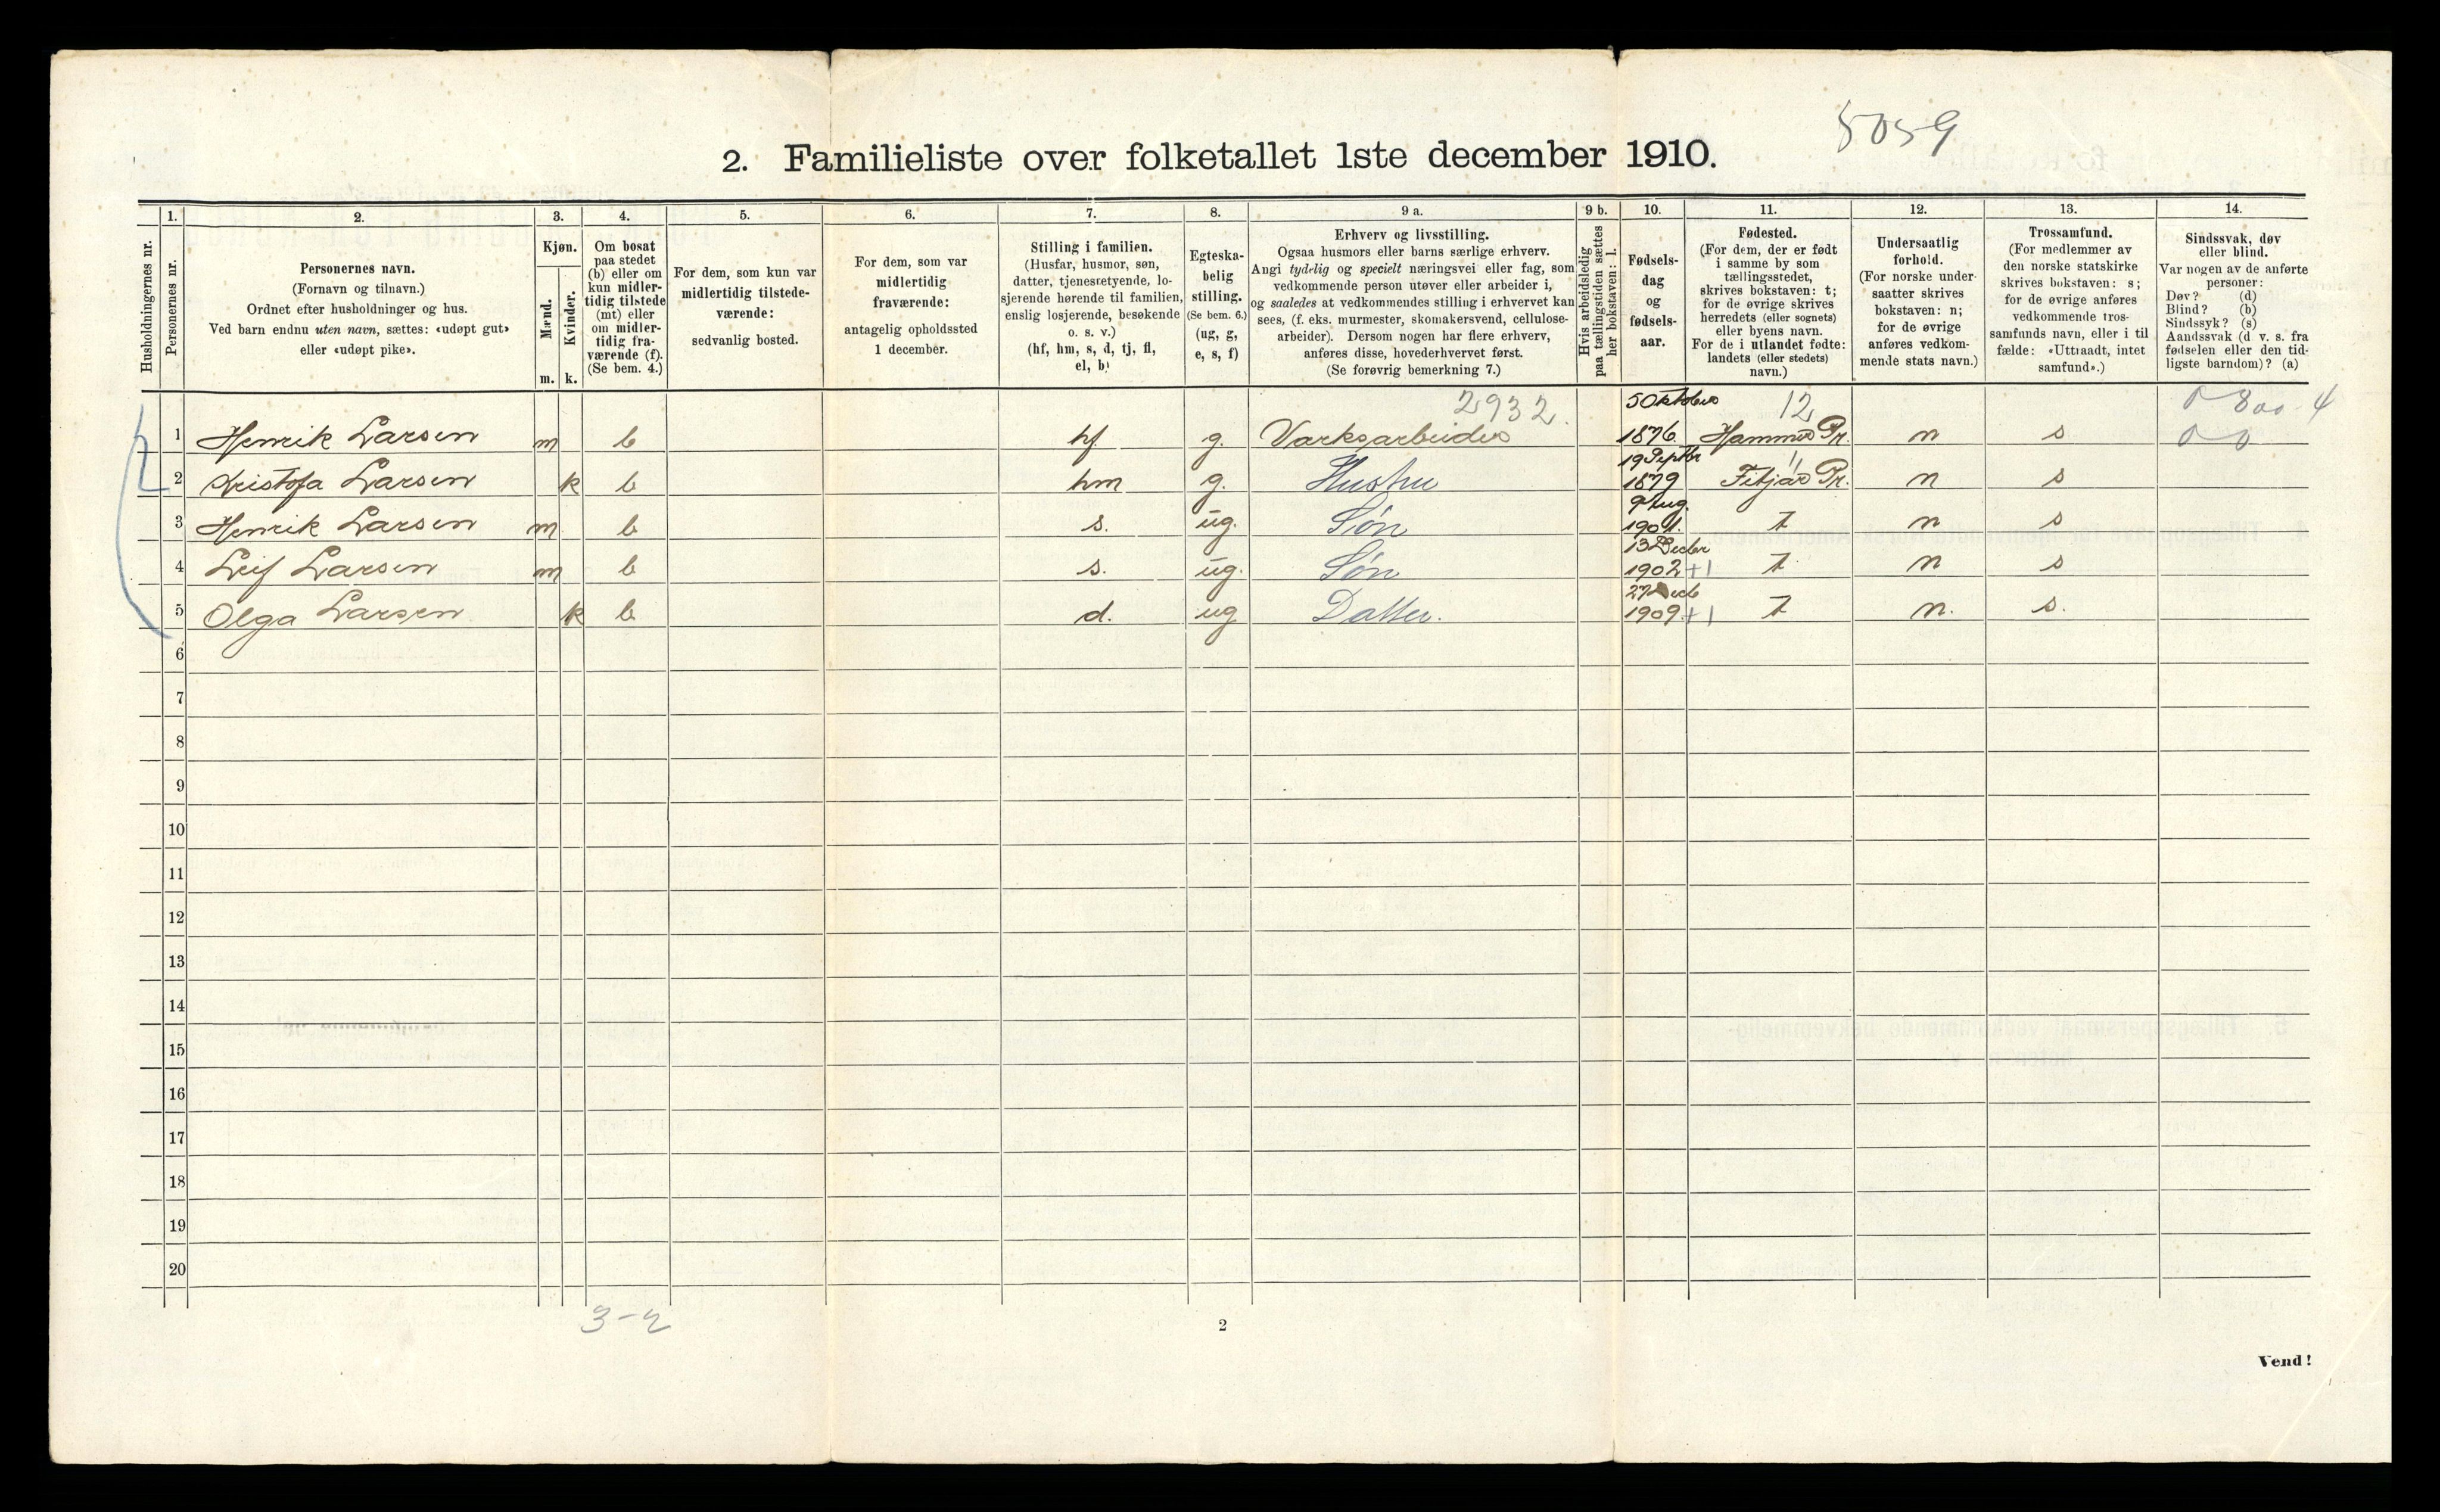 5059
2. Familieliste over folketallet 1ste december 1910.
Husholdningernes nr.
1.
Personernes nr.
2.
Personernes navn.
(Fornavn og tilnavn.)
Ordnet efter husholdninger og hus.
Ved barn endnu uten navn, sættes: «udøpt gut»
eller «udøpt pike».
3.
Kjøn.
Mænd.
Kvinder.
m. k.
4.
Om bosat
paa stedet
(b) eller om
kun midler-
tidig tilstede
(mt) eller
om midler-
tidig fra-
værende (f).
(Se bem. 4.)
5.
For dem, som kun var
midlertidig tilstede-
værende:
sedvanlig bosted.
6.
For dem, som var
midlertidig
fraværende:
antagelig opholdssted
1 december.
7.
Stilling i familien.
(Husfar, husmor, søn,
datter, tjenestyende, lo-
sjerende hørende til familien,
enslig losjerende, besøkende
o. s. v.)
(hf, hm, s, d, tj, fl,
el, b)
8.
Egteska-
belig
stilling.
(Se bem. 6.)
(ug, g,
e, s, f)
9 a.
Erhverv og livsstilling.
Ogsaa husmors eller barns særlige erhverv.
Angi tydelig og specielt næringsvei eller fag, som
vedkommende person utøver eller arbeider i,
og saaledes at vedkommendes stilling i erhvervet kan
sees, (f. eks. murmester, skomakersvend, cellulose-
arbeider). Dersom nogen har flere erhverv,
anføres disse, hovederhvervet først.
(Se forøvrig bemerkning 7.)
9 b.
Hvis arbeidsledig
paa tællingstiden sættes
her bokstaven: l.
10.
Fødsels-
dag
og
fødsels-
aar.
11.
Fødested.
(For dem, der er født
i samme by som
tællingsstedet,
skrives bokstaven: t;
for de øvrige skrives
herredets (eller sognets)
eller byens navn.
For de i utlandet fødte:
landets (eller stedets)
navn.)
12.
Undersaatlig
forhold.
(For norske under-
saatter skrives
bokstaven: n;
for de øvrige
anføres vedkom-
mende stats navn.)
13.
Trossamfund.
(For medlemmer av
den norske statskirke
skrives bokstaven: s;
for de øvrige anføres
vedkommende tros-
samfunds navn, eller i til
fælde: «Uttraadt, intet
samfund».)
14.
Sindssvak, døv
eller blind.
Var nogen av de anførte
personer:
Døv? (d)
Blind? (b)
Sindssyk? (s)
Aandssvak (d v. s. fra
fødselen eller den tid-
ligste barndom)? (a)
2932. 5 Oktober 12
1 Henrik Larsen m b hf g. Varksarbeider 1876. Hammer Pr. n s
19 Septbr 11
2 Kristofa Larsen k b hm g. Hustru 1879 Fitjar Pr. n s
9 Aug.
3 Henrik Larsen m b s. ug. Søn 1901. t n s
13 Decbr
4 Leif Larsen m b s. ug. Søn 1902 +1 t n s
27 Decb
5 Olga Larsen k b d. ug Datter. 1909 +1 t n. s.
6
7
8
9
10
11
12
13
14
15
16
17
18
19
20
3-2
2
Vend!